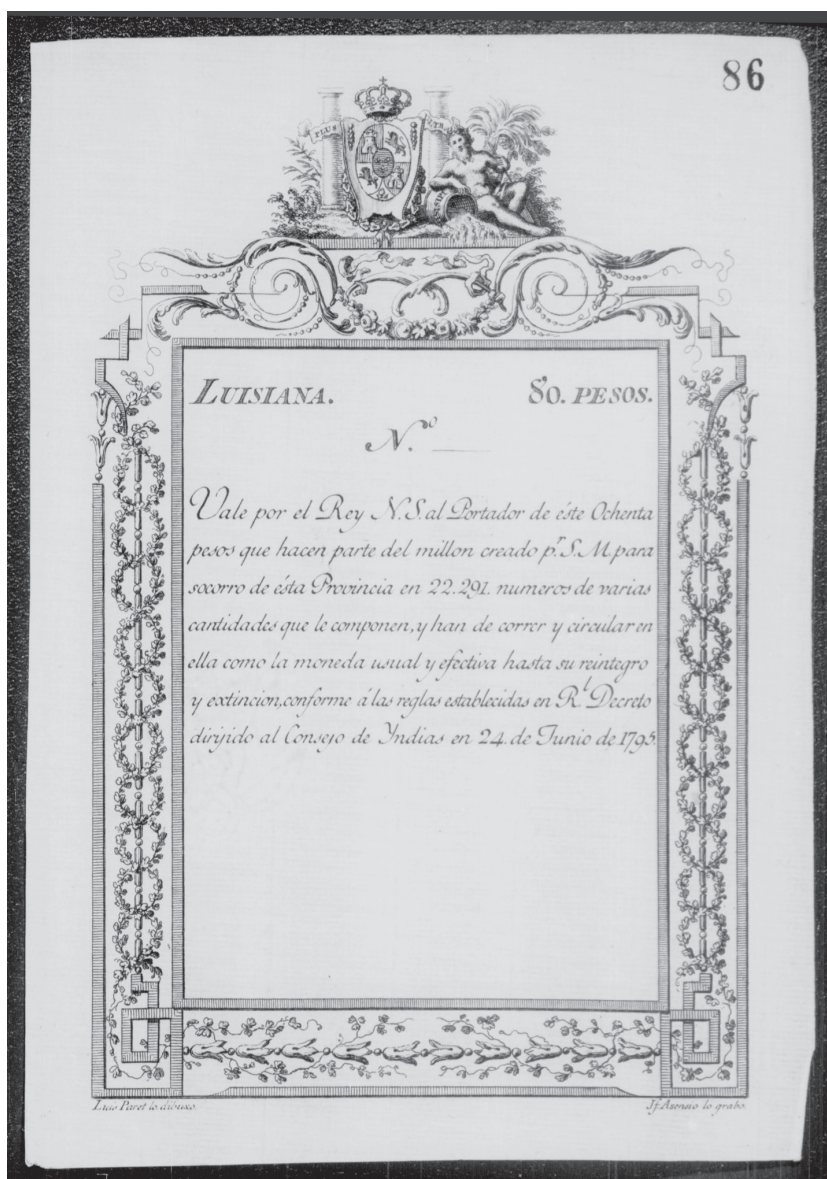 86
PLUS
LUISIANA. 80. PESOS.
N.º
Vale por el Rey N. S. al Portador de éste Ochenta
pesos que hacen parte del millon creado p.r S. M. para
socorro de ésta Provincia en 22.291. numeros de varias
cantidades que le componen, y han de correr y circular en
ella como la moneda usual y efectiva hasta su reintegro
y extincion, conforme á las reglas establecidas en R.l Decreto
dirijido al Consejo de Yndias en 24. de Junio de 1795.
Luis Paret lo dibuxo. Jf. Asensio lo grabo.